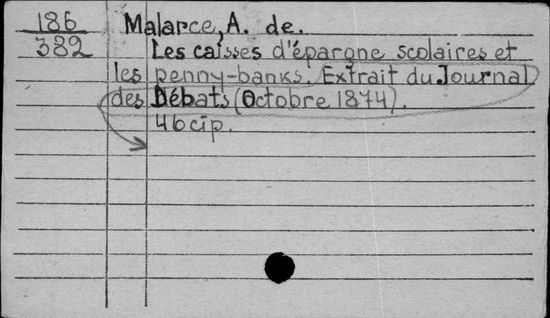 186 Malarce, A. de.
382 Les caisses d'épargne scolaires et
les penny-banks. Extrait du Journal
des Débats (Octobre 1874).
46 cip.